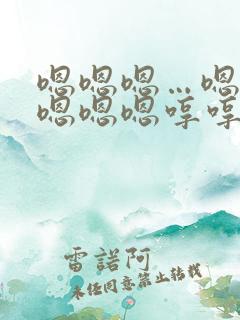 嗯嗯嗯…嗯
嗯嗯嗯哼哼
雷諾阿
未经同意禁止转载